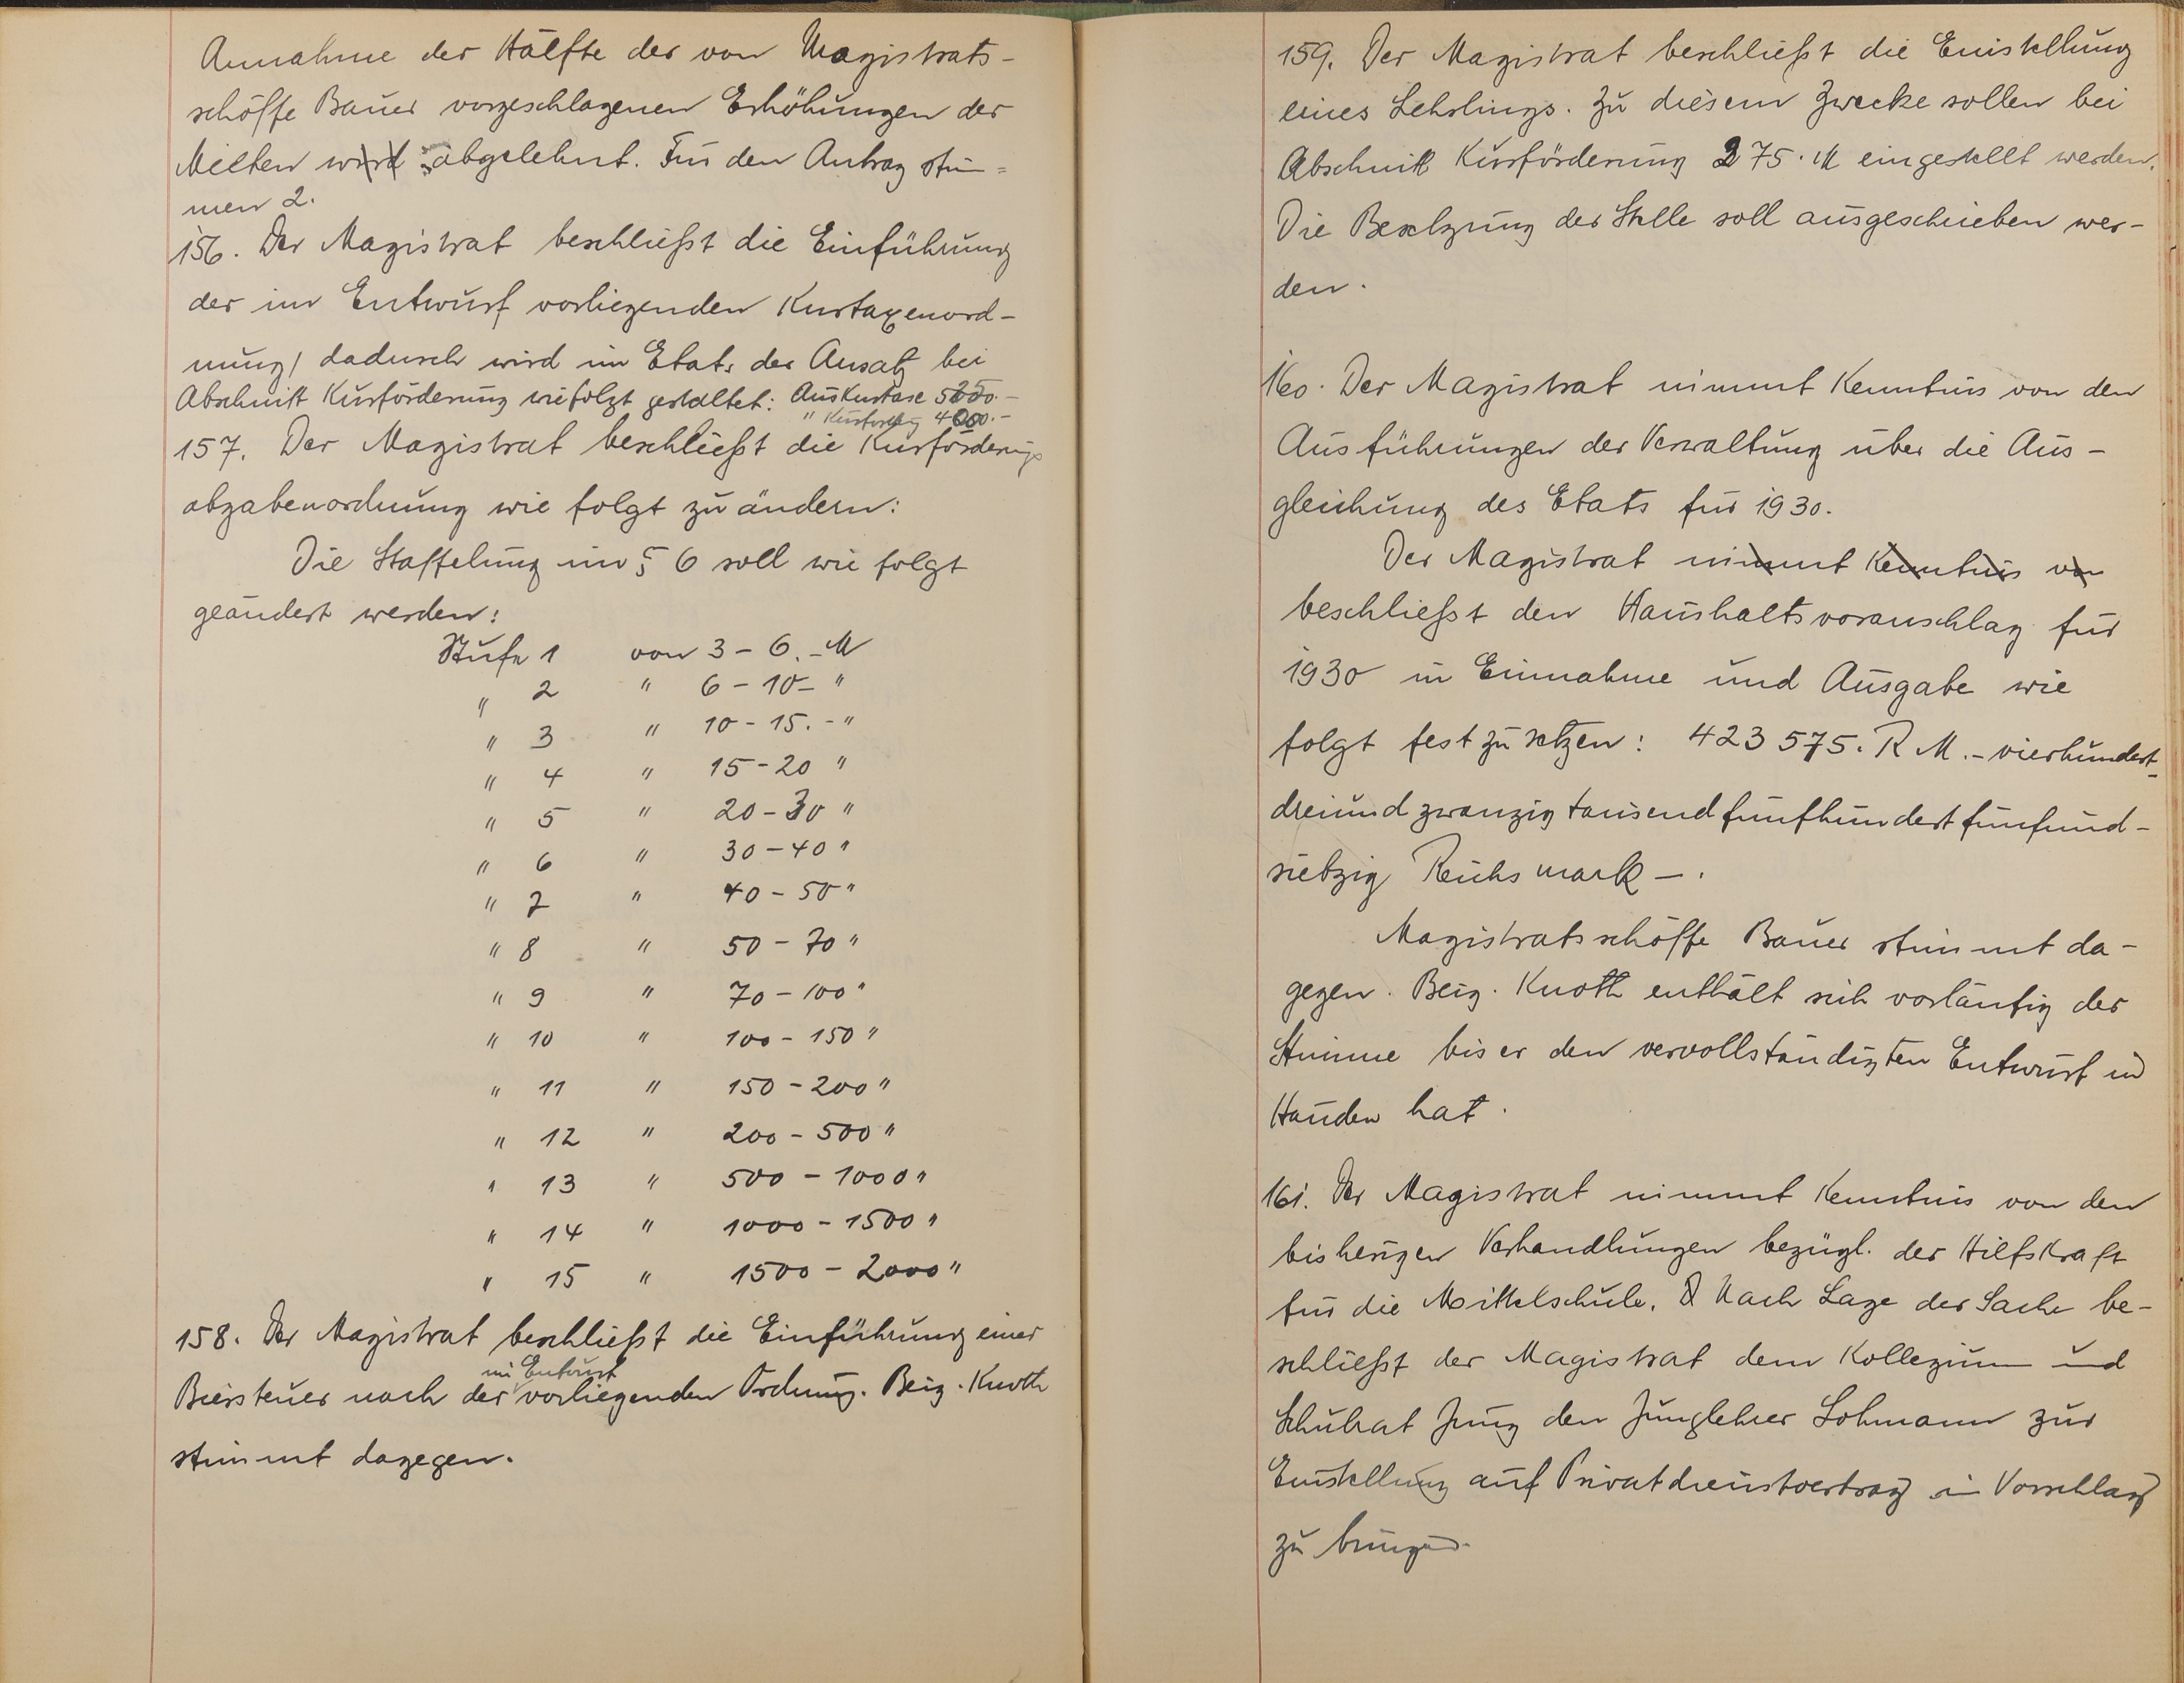 Annahme der Hälfte der von Magistrats-
schöffe Bauer vorgeschlagenen Erhöhungen der
Mieten wird abgelehnt. Für den Antrag stim=
men 2.
156. Der Magistrat beschließt die Einführung
der im Entwurf vorliegenden Kurtaxenord-
nung, dadurch wird im Etat der Ansatz bei
Abschnitt Kurförderung wie folgt gestaltet: Aus Kurtaxe
" 4000.-
157. Der Magistrat beschließt die Kurförderungs
abgabenordnung wie folgt zu ändern:
Die Staffelung im § 6 soll wie folgt
geändert werden:
Stufe 1 von 3 - 6.- M
" 2 " 6 - 10 - "
" 3 " 10 - 15. - "
" 4 " 15 - 20 "
" 5 " 20 - 30 "
" 6 " 30 - 40 "
" 7 " 40 - 50 "
" 8 " 50 - 70 "
" 9 " 70 - 100 "
" 10 " 100 - 150 "
" 11 " 150 - 200 "
" 12 " 200 - 500 "
" 13 " 500 - 1000 "
" 14 " 1000 - 1500 "
" 15 " 1500 - 2000 "
158. Der Magistrat beschließt die Einführung einer
im Entwurf
Biersteuer nach der vorliegenden Ordnung. Beig. Knoth
stimmt dagegen.
159. Der Magistrat beschließt die Einstellung
eines Lehrlings. Zu diesem Zwecke sollen bei
Abschnitt Kurförderung 275. M eingestellt werden.
Die Besetzung der Stelle soll ausgeschrieben wer-
den.
160. Der Magistrat nimmt Kenntnis von den
Ausführungen der Verwaltung über die Aus-
gleichung des Etats für 1930.
Der Magistrat nimmt Kenntnis von
beschließt den Haushaltsvoranschlag für
1930 in Einnahme und Ausgabe wie
folgt festzusetzen: 423 575. R M. - vierhundert-
dreiundzwanzigtausendfünfhundertfünfund-
siebzig Reichsmark - .
Magistratsschöffe Bauer stimmt da-
gegen. Beig. Knoth enthält sich vorläufig der
Stimme bis er den vervollständigten Entwurf in
Händen hat.
161. Der Magistrat nimmt Kenntnis von den
bisherigen Verhandlungen bezügl. der Hilfskraft
für die Mittelschule. Nach Lage der Sache be-
schließt der Magistrat dem Kollegium und
Schulrat Jung den Junglehrer Lohmann zur
Einstellung auf Privatdienstvertrag in Vorschlag
zu bringen.